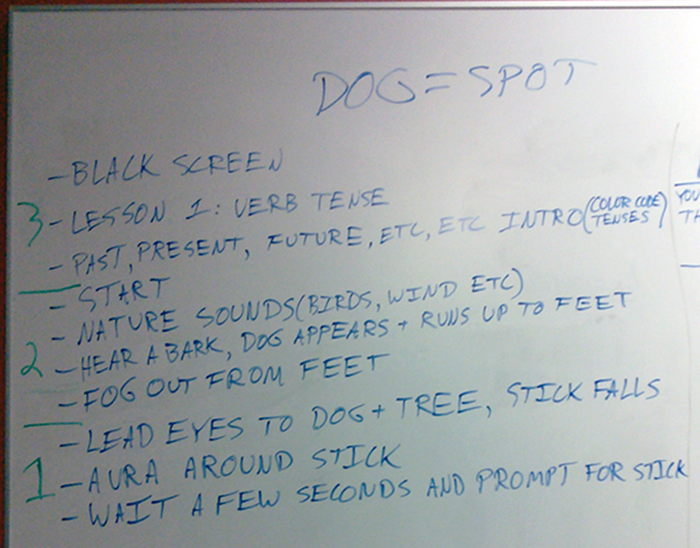 DOG = SPOT
- BLACK SCREEN
3 - LESSON 1: VERB TENSE
- PAST, PRESENT, FUTURE, ETC, ETC INTRO (COLOR CODE TENSES)
- START
- NATURE SOUNDS (BIRDS, WIND ETC)
2 - HEAR A BARK, DOG APPEARS + RUNS UP TO FEET
- FOG OUT FROM FEET
- LEAD EYES TO DOG + TREE, STICK FALLS
1 - AURA AROUND STICK
- WAIT A FEW SECONDS AND PROMPT FOR STICK
YOU
TH